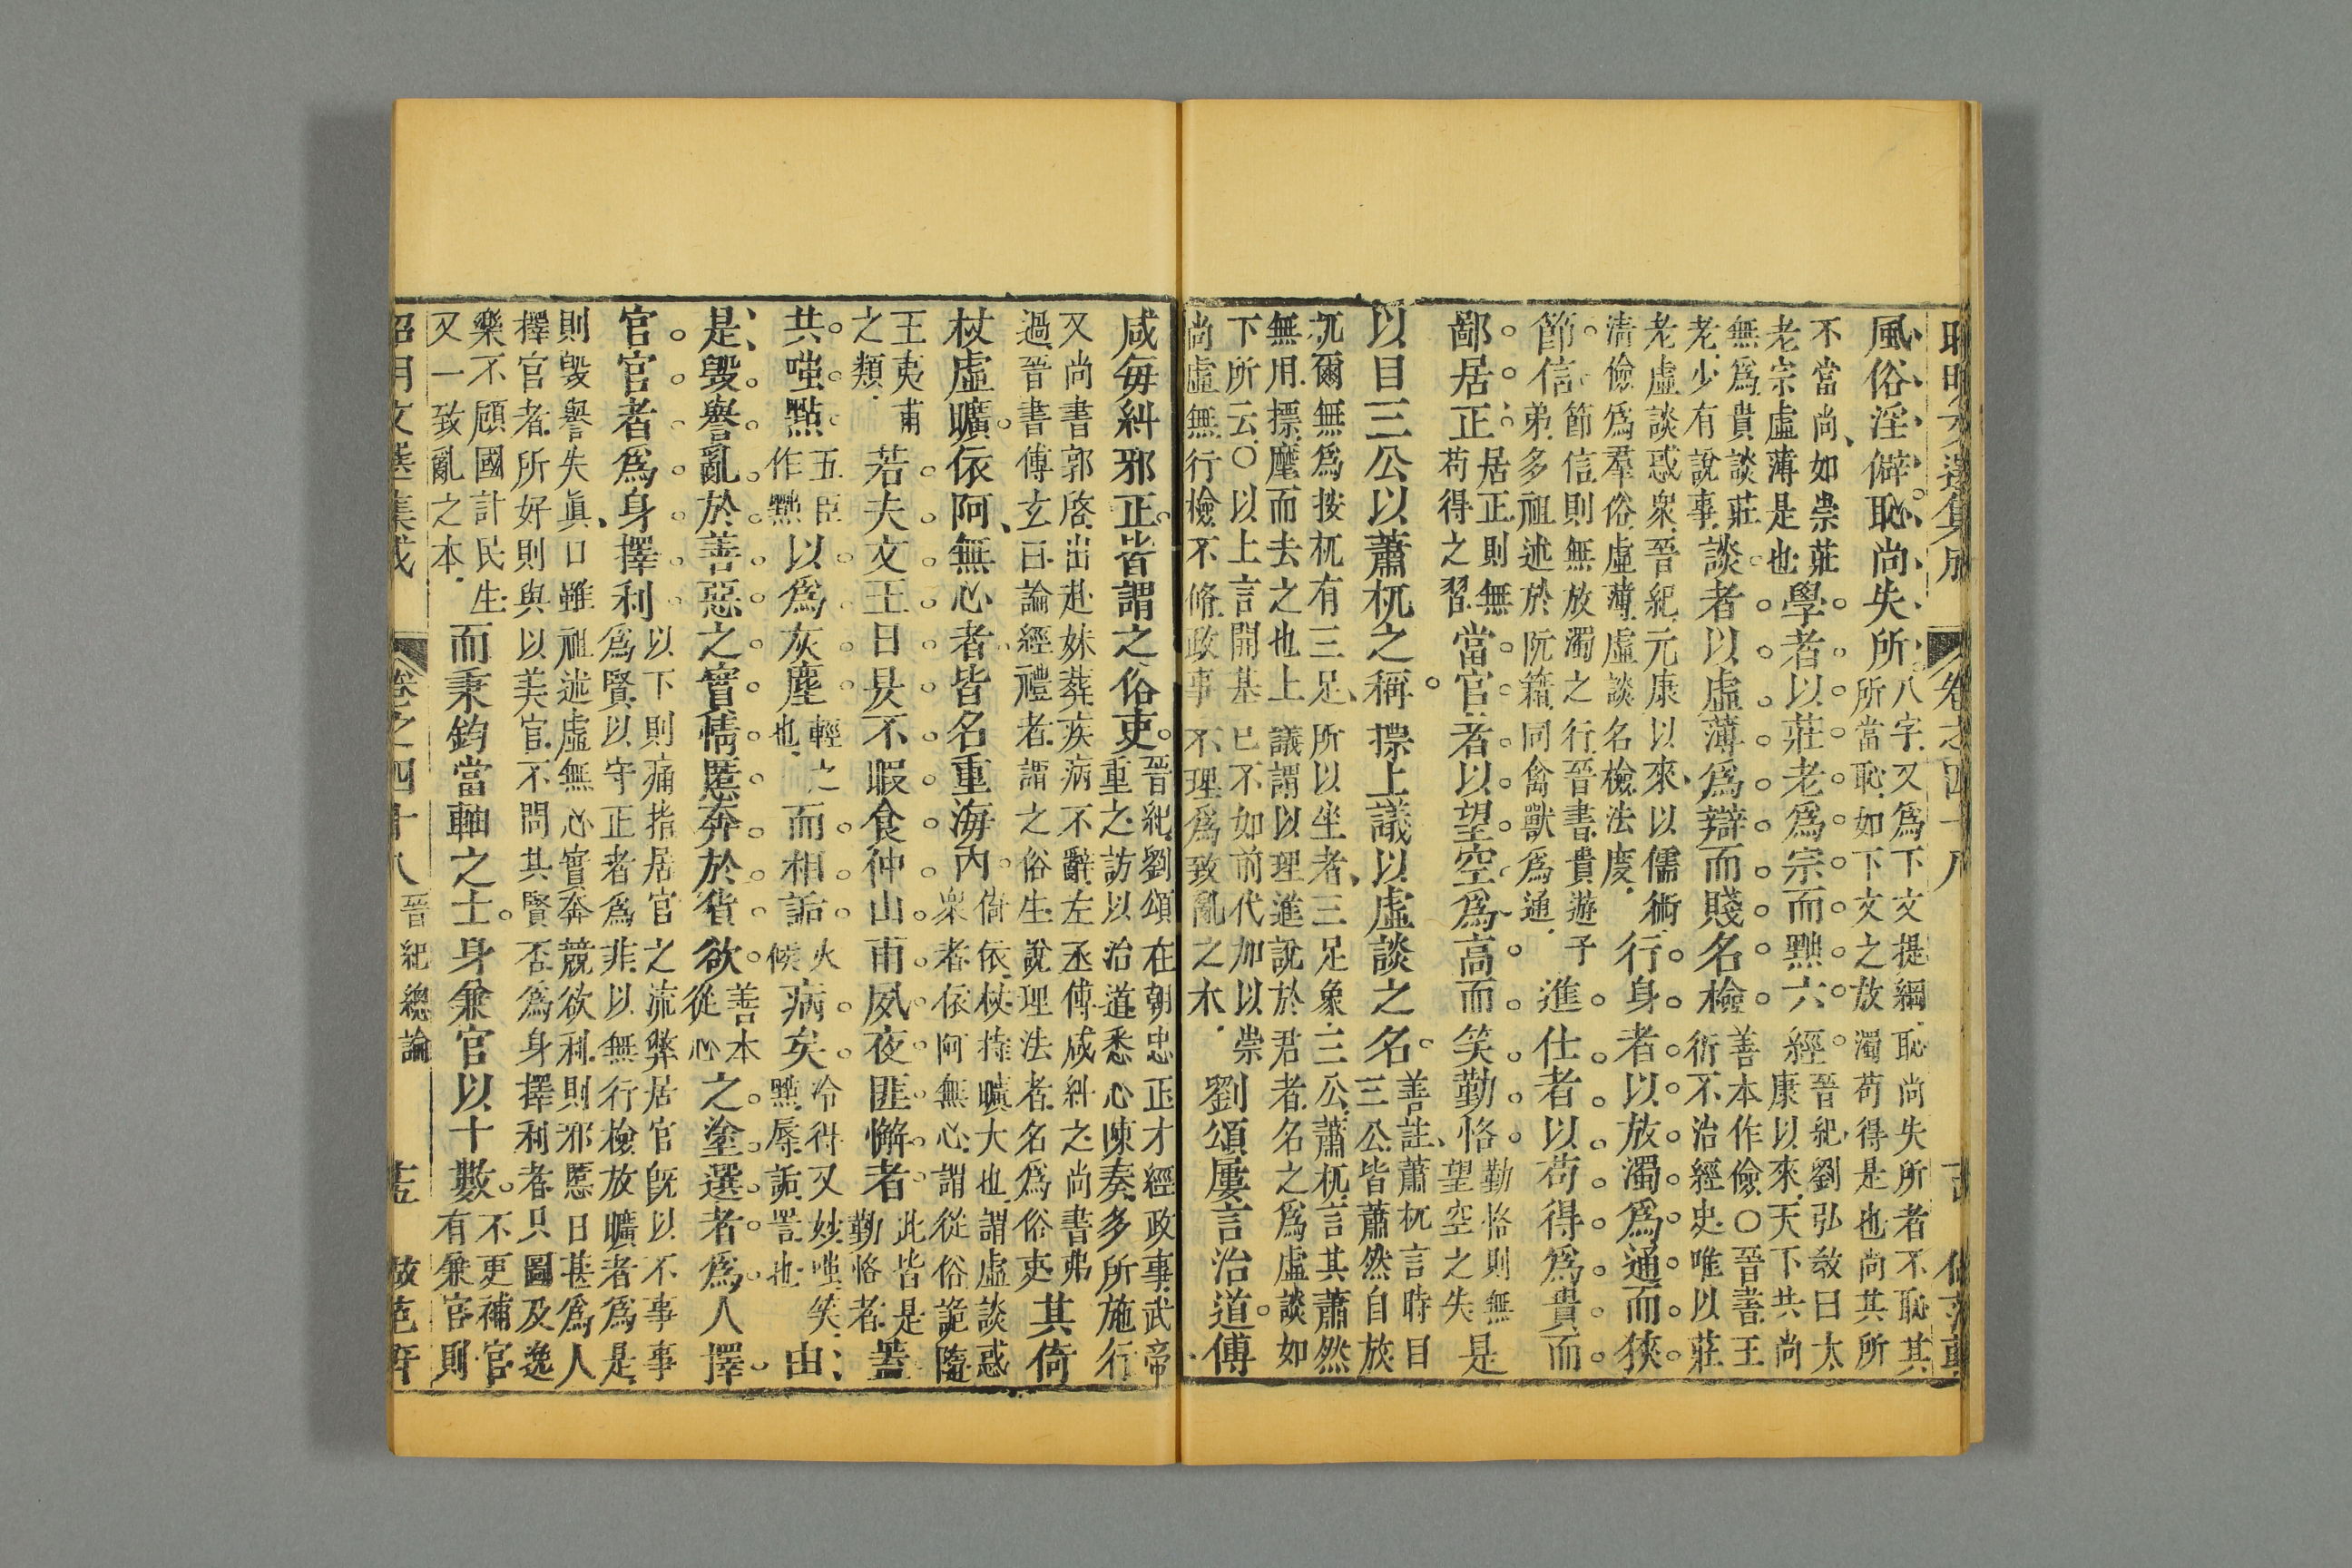 昭明文選集成　卷之四十八
風俗淫僻恥尚失所
八字又爲下文提綱恥尚失所者不恥其
所當恥如下文之放濁苟得是也尚其所
不當尚如崇莊
老宗虛薄是也
學者以莊老爲宗而黜六經
晉紀劉弘敎曰太
康以來天下共尚
無爲貴談莊
老少有說事
談者以虛薄爲辯而賤名檢
善本作儉〇晉書王
衍不治經史唯以莊
老虛談惑衆晉紀元康以來以儒術
清儉爲羣俗虛薄虛談名檢法度
行身者以放濁爲通而狹
節信
節信則無放濁之行晉書貴遊子
弟多祖述於阮籍同禽獸爲通
進仕者以苟得爲貴而
鄙居正
居正則無
苟得之習
當官者以望空爲高而笑勤恪
勤恪則無
望空之失
是
以目三公以蕭杌之稱摽上議以虛談之名
善註蕭杌言時目
三公皆蕭然自放
杌爾無爲按杌有三足所以坐者三足象三公蕭杌言其蕭然
無用摽麾而去之也上議謂以理進說於君者名之爲虛談如
下所云〇以上言開基已不如前代加以崇
尚虛無行檢不脩政事不理爲致亂之木
劉頌屢言治道傅
咸毎糾邪正皆謂之俗吏
晉紀劉頌在朝忠正才經政事武帝
重之訪以治道悉心陳奏多所施行
又尚書郭啓出赴妹葬疾病不辭左丞傅咸糾之尚書弗
過晉書傅玄曰論經禮者謂之俗生說理法者名爲俗吏
其倚
杖虛曠依阿無心者皆名重海內
倚依杖持曠大也謂虛談惑
衆者依阿無心謂從俗詭隨
王夷甫
之類
若夫文王日昃不暇食仲山甫夙夜匪懈者
此皆是
勤恪者
蓋
共嗤點
五臣
作黜
以爲灰塵
輕之
也
而相詬
火
候
病矣
冷得又妙嗤笑
黜辱詬詈也
由
是毀譽亂於善惡之實情慝奔於貨欲
善本
從心
之塗選者爲人擇
官官者爲身擇利
以下則痛指居官之流弊居官旣以不事事
爲賢以守正者爲非以無行檢放曠者爲是
則毀譽失眞口雖祖述虛無心實奔競欲利則邪慝日甚爲人
擇官者所好則與以美官不問其賢否爲身擇利者只圖及逸
樂不顧國計民生
又一致亂之本
而秉鈞當軸之士身兼官以十數
不更補官
有兼官則
昭明文選集成　卷之四十八　晉紀總論